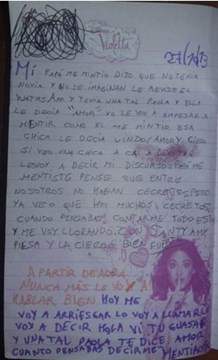 Violetta
27/7/13
MI PAPÁ ME MINTIO DIJO QUE NO TENIA
NOVIA Y NO SE IMAGINAN LE REVISE E
WATHSAM Y TENIA UNA TAL PAOLA Y ELLA
LE DECIA AMOR YO LE VOY A EMPESAR A
MENTIR COMO EL ME MINTIO ESA
CHICA LE DECIA LINDO AMOR Y CIELO
SI VEO UNA CHICA A CA A DENTRO
LE VOY A DECIR MI DISCULPA POR QUE ME
MENTISTE PENSE QUE ENTRE
NOSOTROS NO HABIAN SECRETOS PERO
YA VEO QUE HAY MUCHOS SECRETOS
CUANDO PENSABAS CONTARME TODO ESTO
Y ME VOY LLORANDO CON SANTI A MI
PIESA Y LA CIERRO BIEN FUERTE
A PARTIR DE AORA
NUNCA MÁS LE VOY A
HABLAR BIEN HOY ME
VOY A ARRIESGAR LO VOY A LLAMAR LE
VOY A DECIR HOLA VI TU GUASAP
Y UNA TAL PAOLA TE DICE AMOR
CUANTO PENSABAS DECIRME MENTIROSO